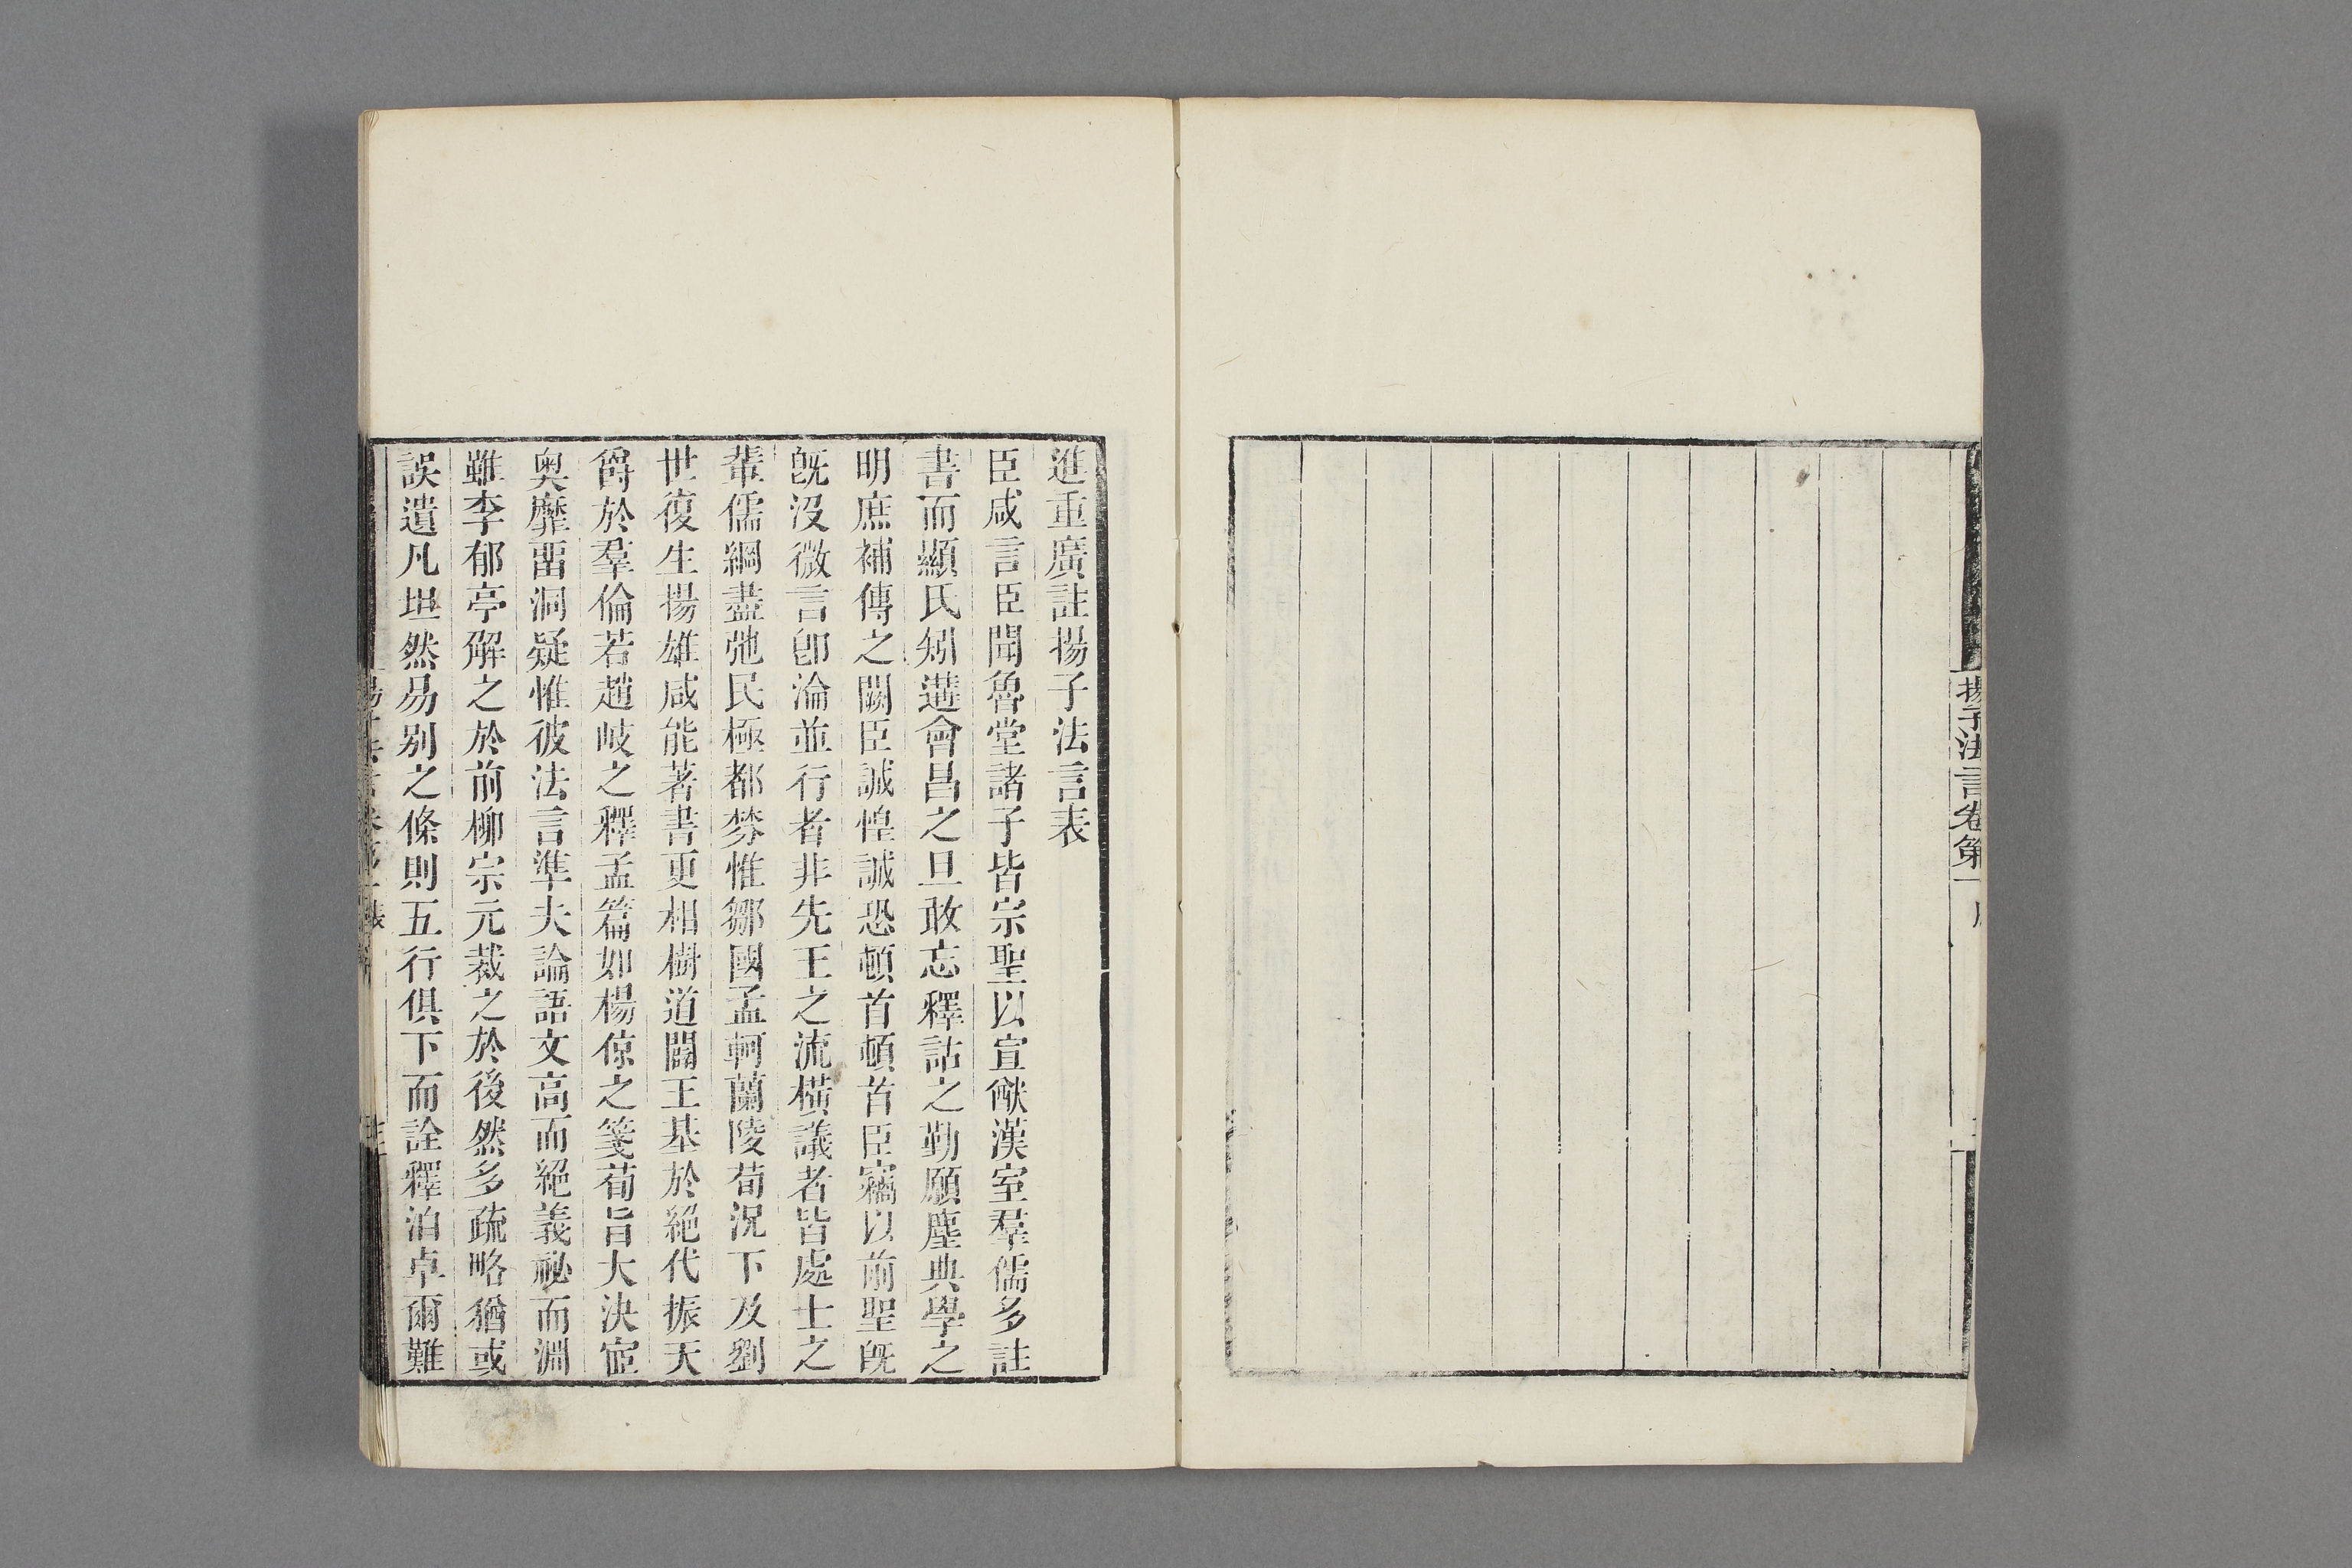 揚子法言卷第一
進重廣註揚子法言表
臣咸言臣聞魯堂諸子皆宗聖以宣猷漢室羣儒多註
書而顯氏矧遘會昌之旦敢忘釋詁之勤願塵典學之
明庶補傳之闕臣誠惶誠恐頓首頓首臣竊以前聖旣
旣沒微言卽淪並行者非先王之流橫議者皆處士之
輩儒綱盡弛民極都棼惟鄒國孟軻蘭陵荀況下及劉
世復生揚雄咸能著書更相樹道闢王基於絕代振天
爵於羣倫若趙岐之釋孟篇如楊倞之箋荀旨大決窒
奧靡畱洞疑惟彼法言準夫論語文高而絕義祕而淵
雖李郁亭解之於前柳宗元裁之於後然多疏略猶或
誤遺凡坦然易别之條則五行俱下而詮釋洎卓爾難